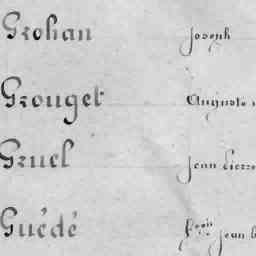 Grohan Joseph
Grouget Auguste
Gruel Jean Pierre
Guédé fçois Jean b